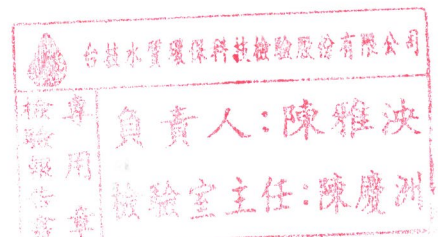 台技水質環保科技檢驗股份有限公司
檢驗報告書
專用章
負責人：陳雅泱
檢驗室主任：陳鷹洲